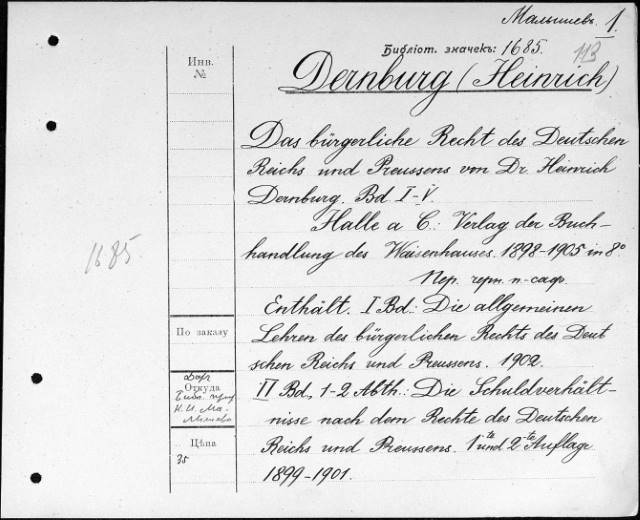 Малышевъ 1.
Библіот. значекъ: 1685.
113
Инв.
№
Dernburg (Heinrich)
Das bürgerliche Recht des Deutschen
Reichs und Preussens von Dr. Heinrich
Dernburg. Bd I-V.
Halle a C: Verlag der Buch-
handlung des Waisenhauses. 1898-1905 in 8°
1685.
Пер. черн. п-саф.
Enthält. I Bd.: Die allgemeinen
Lehren des bürgerlichen Rechts des Deut
schen Reichs und Preussens. 1902.
По заказу
II Bd, 1-2 Abth.: Die Schuldverhält-
nisse nach dem Rechte des Deutschen
Reichs und Preussens. 1te und 2-te Auflage
1899-1901.
Даръ
Откуда
Библ. проф
К. И. Ма-
лышева
Цѣна
35